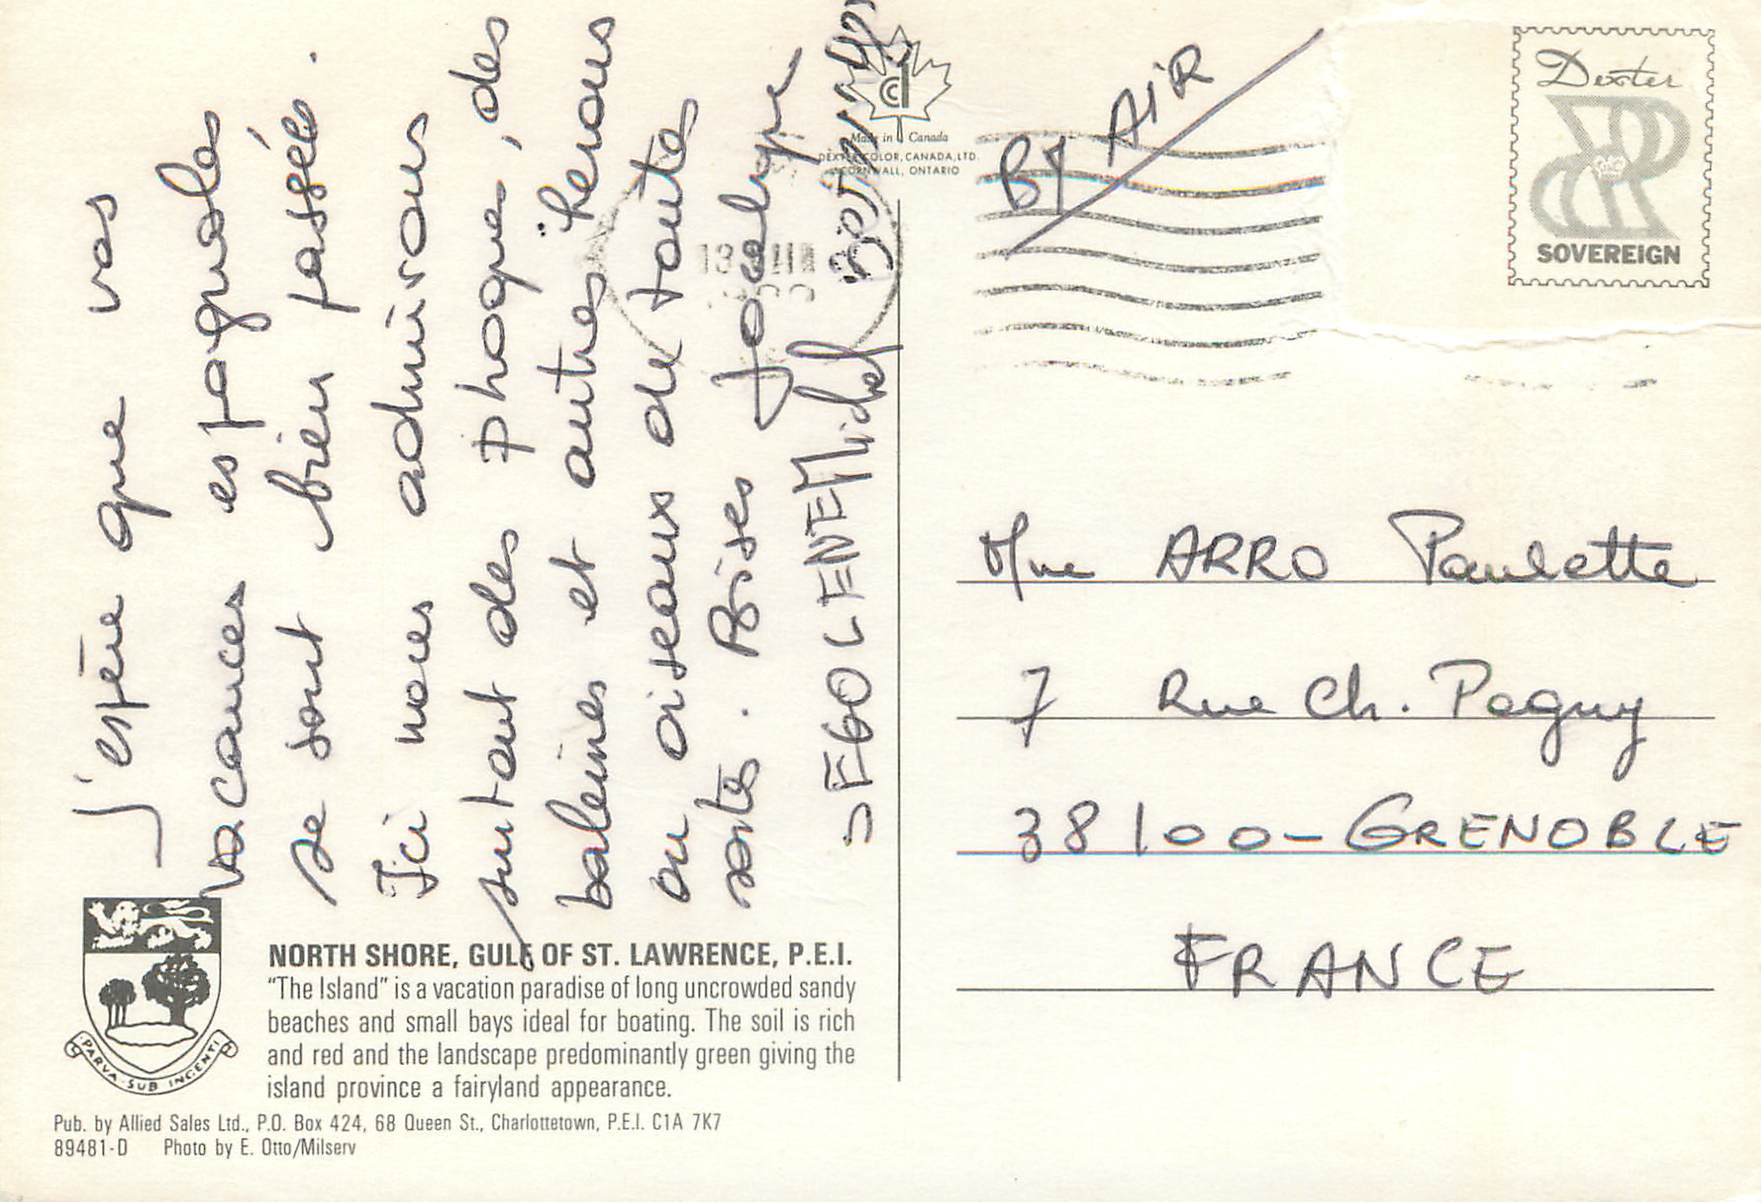 J'espère que vos
vacances espagnoles
se sont bien passées.
Ici nous admirons
surtout des phoques, des
baleines et autres hérons
ou oiseaux de toutes
sortes. Bises Jocelyne
SEGOLENE Michel Bernard
NORTH SHORE, GULF OF ST. LAWRENCE, P.E.I.
"The Island" is a vacation paradise of long uncrowded sandy
beaches and small bays ideal for boating. The soil is rich
and red and the landscape predominantly green giving the
island province a fairyland appearance.
PARVA SUB INGENTI
Pub. by Allied Sales Ltd., P.O. Box 424, 68 Queen St., Charlottetown, P.E.I. C1A 7K7
89481-D Photo by E. Otto/Milserv
Made in Canada
DEXTER COLOR, CANADA, LTD.
CORNWALL, ONTARIO
BY AIR
Dexter
SOVEREIGN
Mme ARRO Paulette
7 Rue Ch. Peguy
38100-GRENOBLE
FRANCE